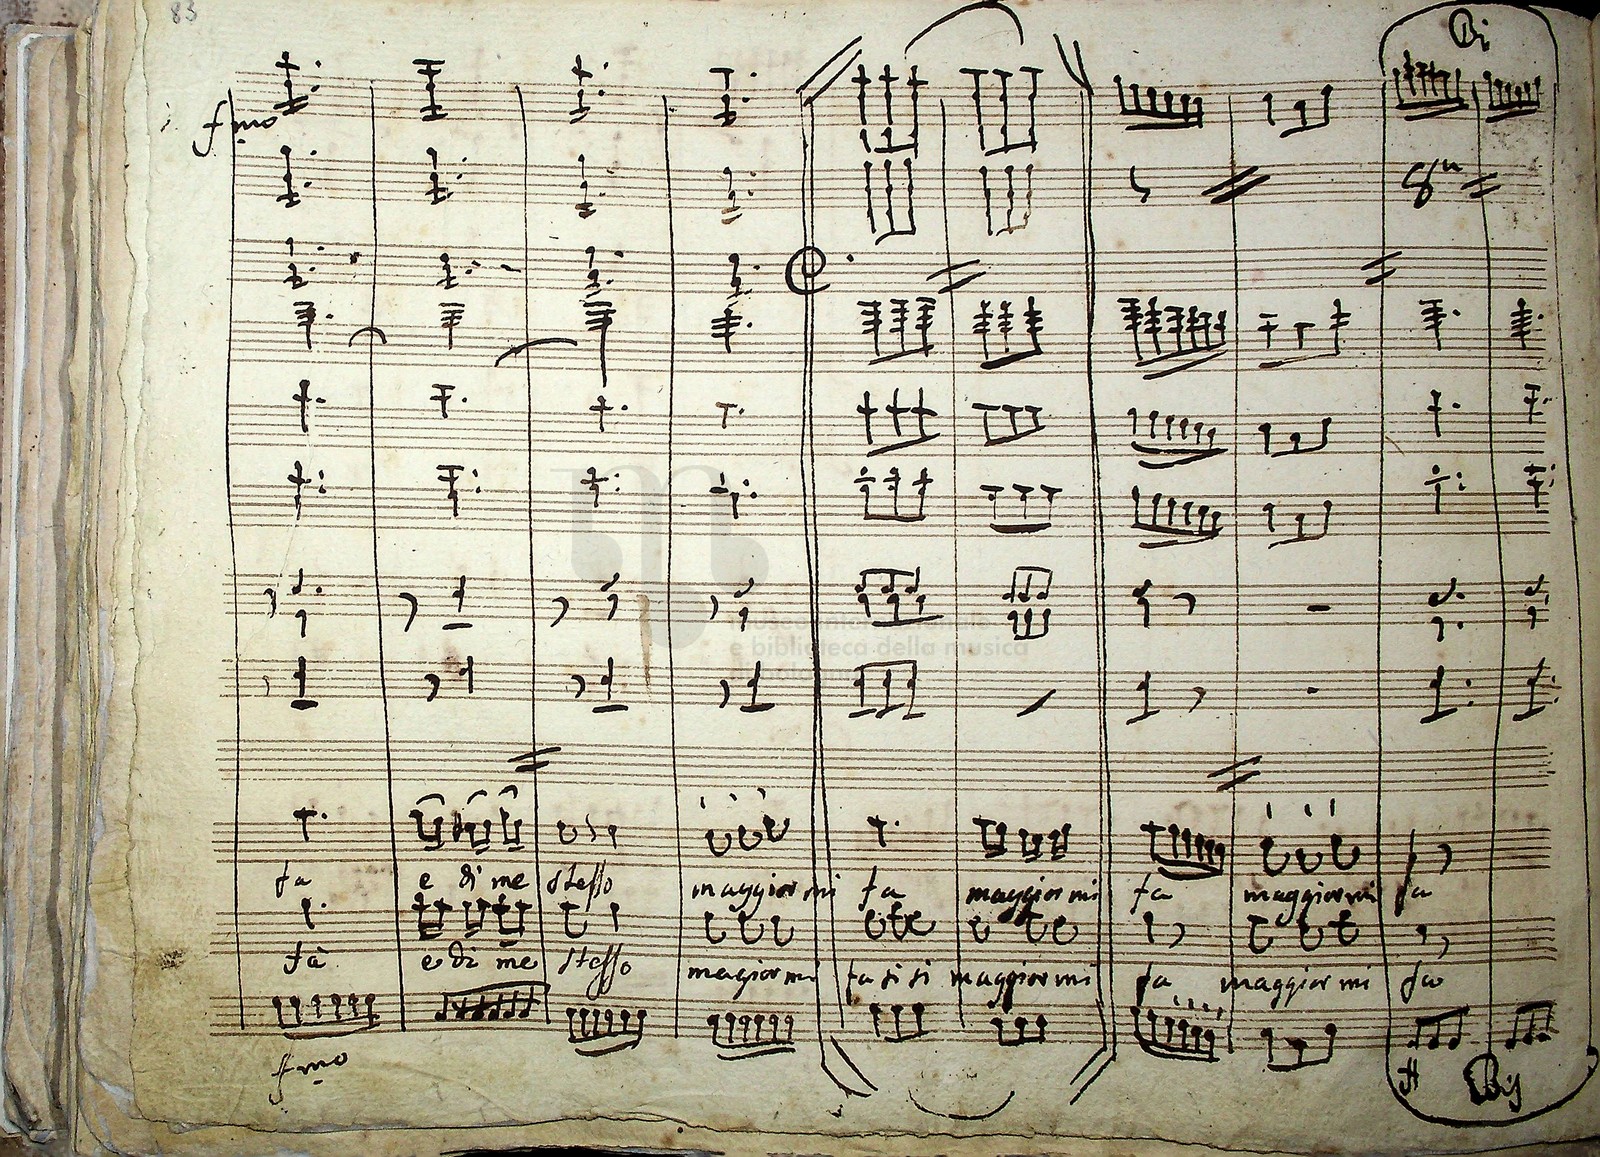 83
Bi
fmo
8a
museo internazionale
e biblioteca della musica
di bologna
fa e di me stesso maggior mi fa maggior mi fa maggior mi fa
fà e di me stesso magior mi fa si si maggior mi fa maggior mi fa
fmo
Bis